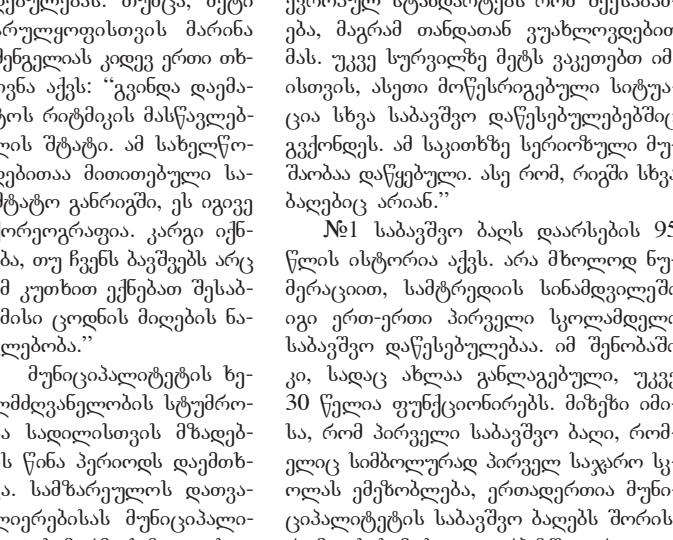 რულყოფისთვის მარინა
შენგელიას კიდევ ერთი თხ-
ოვნა აქვს: “გვინდა დაემა-
ტოს რიტმიკის მასწავლებ-
ლის შტატი. ამ სახელწო-
დებითაა მითითებული სა-
შტატო განრიგში, ეს იგივე
ქორეოგრაფია. კარგი იქნ-
ება, თუ ჩვენს ბავშვებს არც
ამ კუთხით ექნებათ შესაბ-
ამისი ცოდნის მიღების ნა-
კლებობა.”
მუნიციპალიტეტის ხე-
ლმძღვანელობის სტუმრო-
ბა სადილისთვის მზადებ-
ის წინა პერიოდს დაემთხ-
ვა. სამზარეულოს დათვა-
ლიერებისას მუნიციპალი-
ევროპულ სტანდარტებს რომ შეესაბამ-
ება, მაგრამ თანდათან ვუახლოვდებით
მას. უკვე სურვილზე მეტს ვაკეთებთ იმ-
ისთვის, ასეთი მოწესრიგებული სიტუა-
ცია სხვა საბავშვო დაწესებულებებშიც
გვქონდეს. ამ საკითხზე სერიოზული მუ-
შაობაა დაწყებული. ასე რომ, რიგში სხვა
ბაღებიც არიან.”
№1 საბავშვო ბაღს დაარსების 95
წლის ისტორია აქვს. არა მხოლოდ ნუ-
მერაციით, სამტრედიის სინამდვილეში
იგი ერთ-ერთი პირველი სკოლამდელი
საბავშვო დაწესებულებაა. იმ შენობაში
კი, სადაც ახლაა განლაგებული, უკვე
30 წელია ფუნქციონირებს. მიზეზი იმი-
სა, რომ პირველი საბავშვო ბაღი, რომ-
ელიც სიმბოლურად პირველ საჯარო სკ-
ოლას ემეზობლება, ერთადერთია მუნი-
ციპალიტეტის საბავშვო ბაღებს შორის,